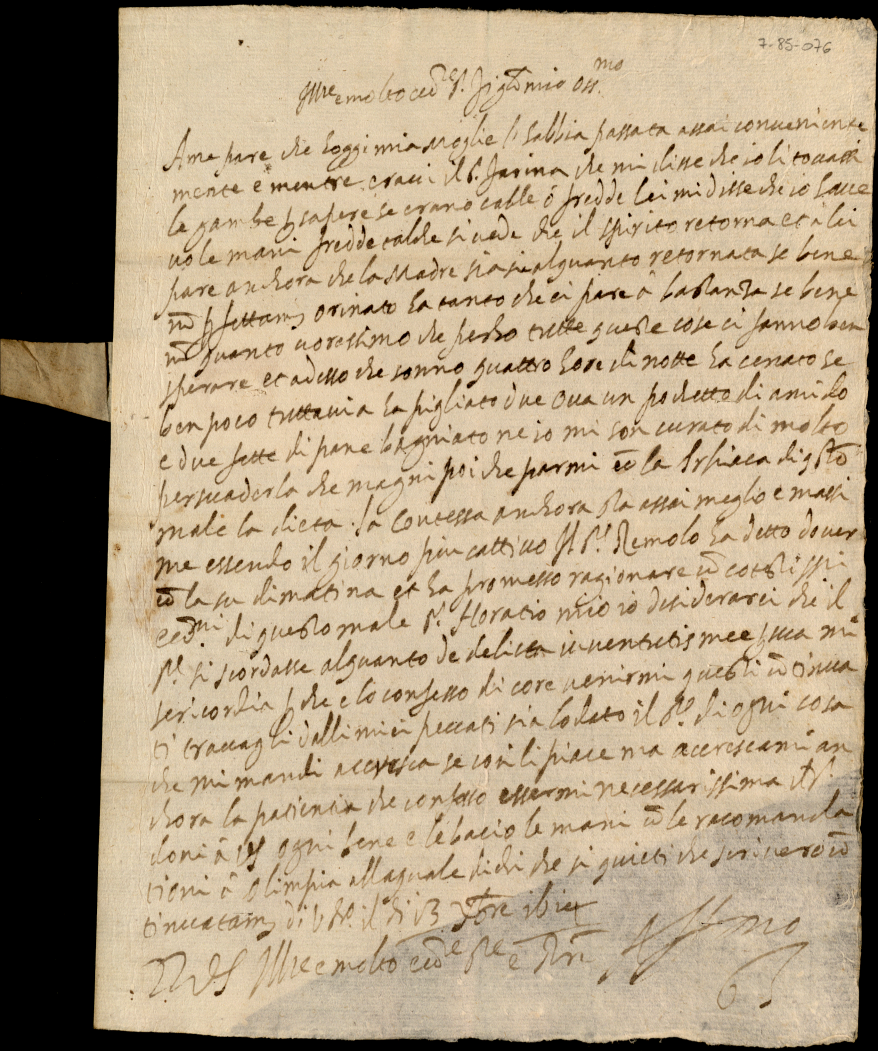 7-85-076
Ill.re e molto ecc.te S.r Sig.r mio oss.mo
A me pare che hoggi mia moglie se l'habbia passata assai conveniente
mente e mentre eravi il S.r Farina che mi disse che io li tocassi
le gambe p sapere se erano calde ó fredde lei mi disse che io havc
vo le mani fredde talche si vede che il spirito retorna et a lei
pare anchora che la Madre sia alquanto retornata se bene
nō p fettam. orinato ha tanto che ci pare á bastanza se bene
nō quanto voressimo che perho tutte queste cose ci fanno ben
sperare et adesso che sonno quattro hore di notte ha cenato se
ben poco tuttavia ha pigliato due ova un pochetto di amido
e due fette di pane bagniato ne io mi son curato di molto
persuaderla che magni poi che parmi cō la di qsto
male la dieta. la Contessa anchora sta assai meglio e massi
me essendo il giorno piu cattivo Il S.r Remolo ha detto dover
cō la su dimatina et ha promesso ragionare cō cotesti ssri
ecc.mi di questo male S.r Horatio mio io desiderarei che il
S.r si scordasse alquanto de delicta iuventutis mee p sua mi
sericordia p che e lo confesso di core venirmi questi cōtinua
ti travagli dalli miei peccati sia lodato il S.r di ogni cosa
che mi mandi accresca se cosi li piace ma accrescami an
chora la patientia che confesso essermi necessarissima il S.r
doni á VS ogni bene e le bacio le mani cō le racomanda
tioni á Olimpia alla quale dichi che si quieti che scrivero cō
tinuatam. di il di 13
DVS Ill.re e molto ecc.e
Aff.mo